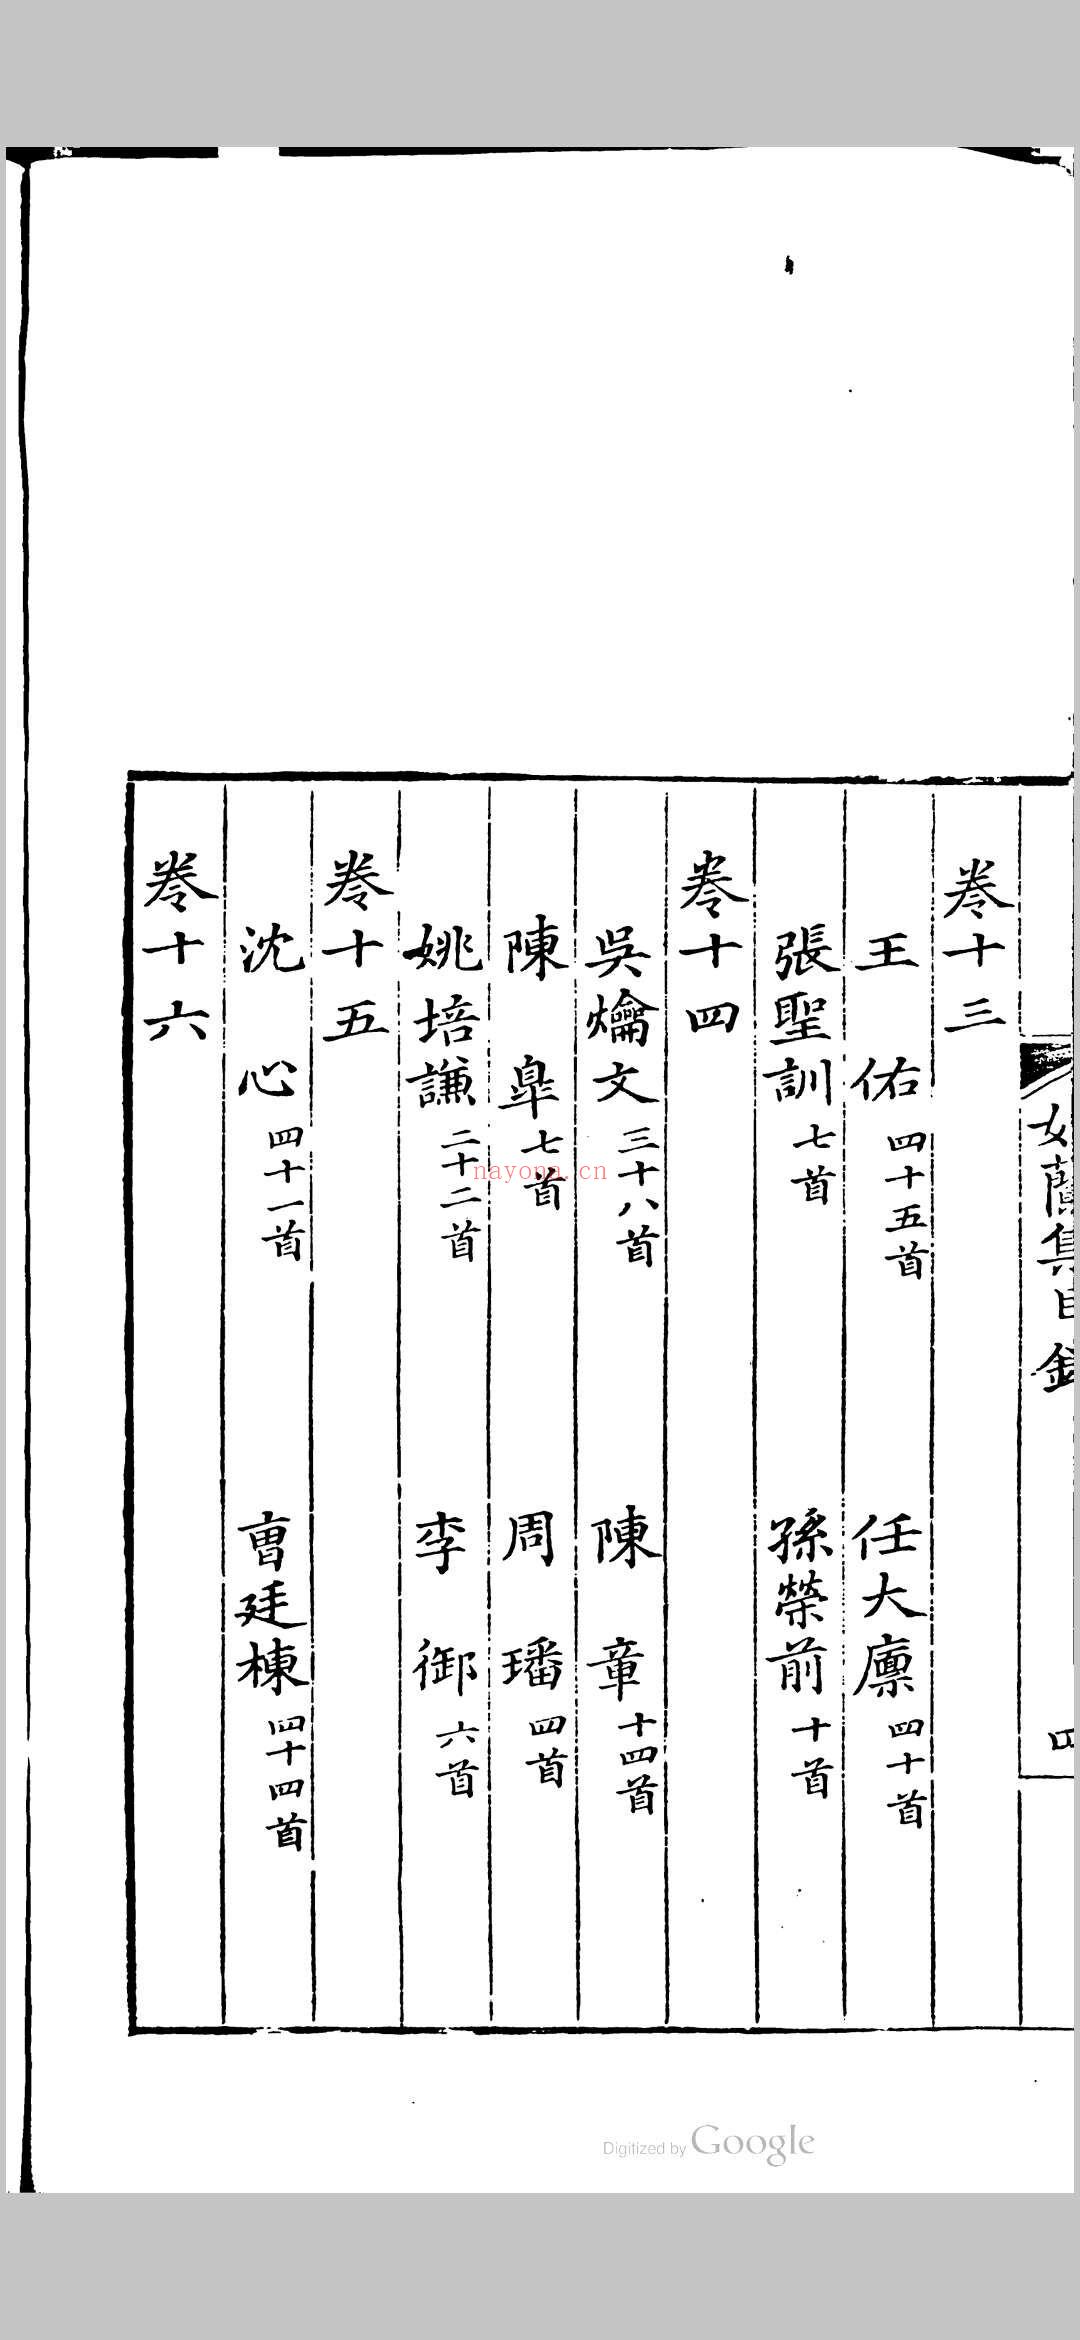 如蘭集目錄 四
卷十三
王佑 四十五首 任大廩 四十首
張聖訓 七首 孫榮前 十首
卷十四
吳爚文 三十八首 陳章 十四首
陳臯 七首 周璠 四首
姚培謙 二十二首 李御 六首
卷十五
沈心 四十一首 曹廷棟 四十四首
卷十六
nayona.cn
Digitized by Google